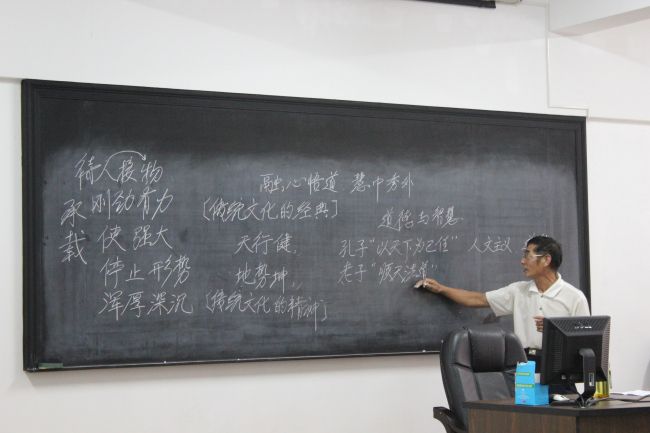 待人接物
承载
刚劲有力
使强大
停止形势
浑厚深沉
融心悟道 慧中秀外
[传统文化的经典]
天行健,
地势坤,
[传统文化的精神]
与智慧
孔子"以天下为己任" 人文主义
老子"顺天法